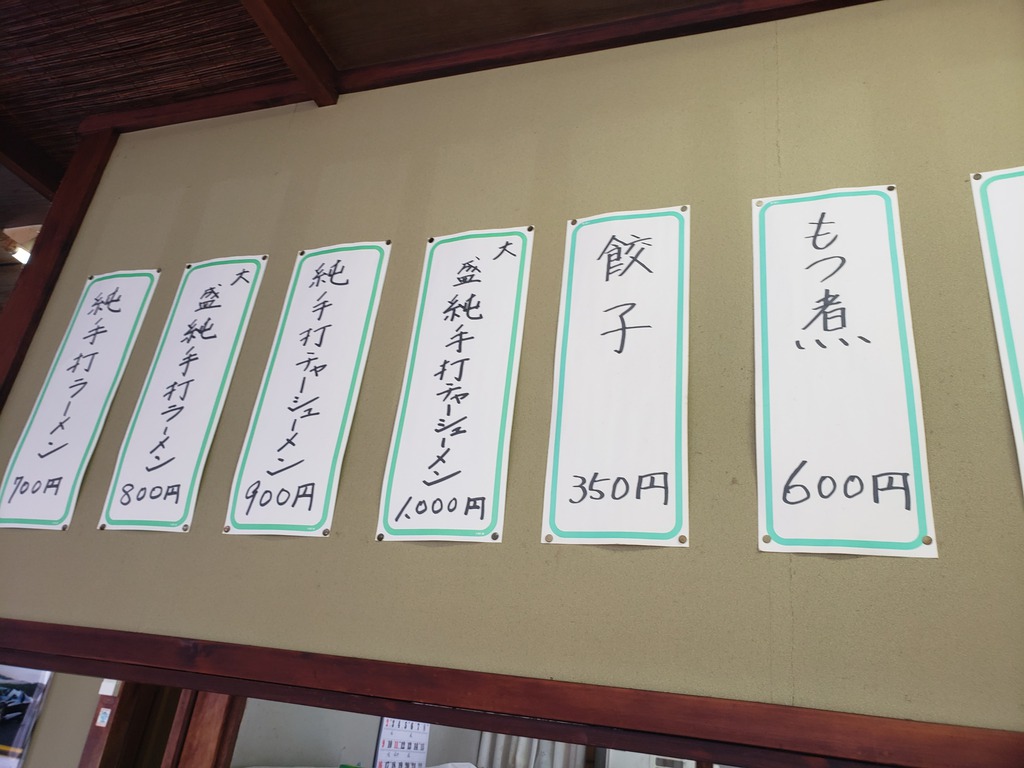 純手打ラーメン
700円
大盛純手打ラーメン
800円
純手打チャーシューメン
900円
大盛純手打チャーシューメン
1,000円
餃子
350円
もつ煮
600円